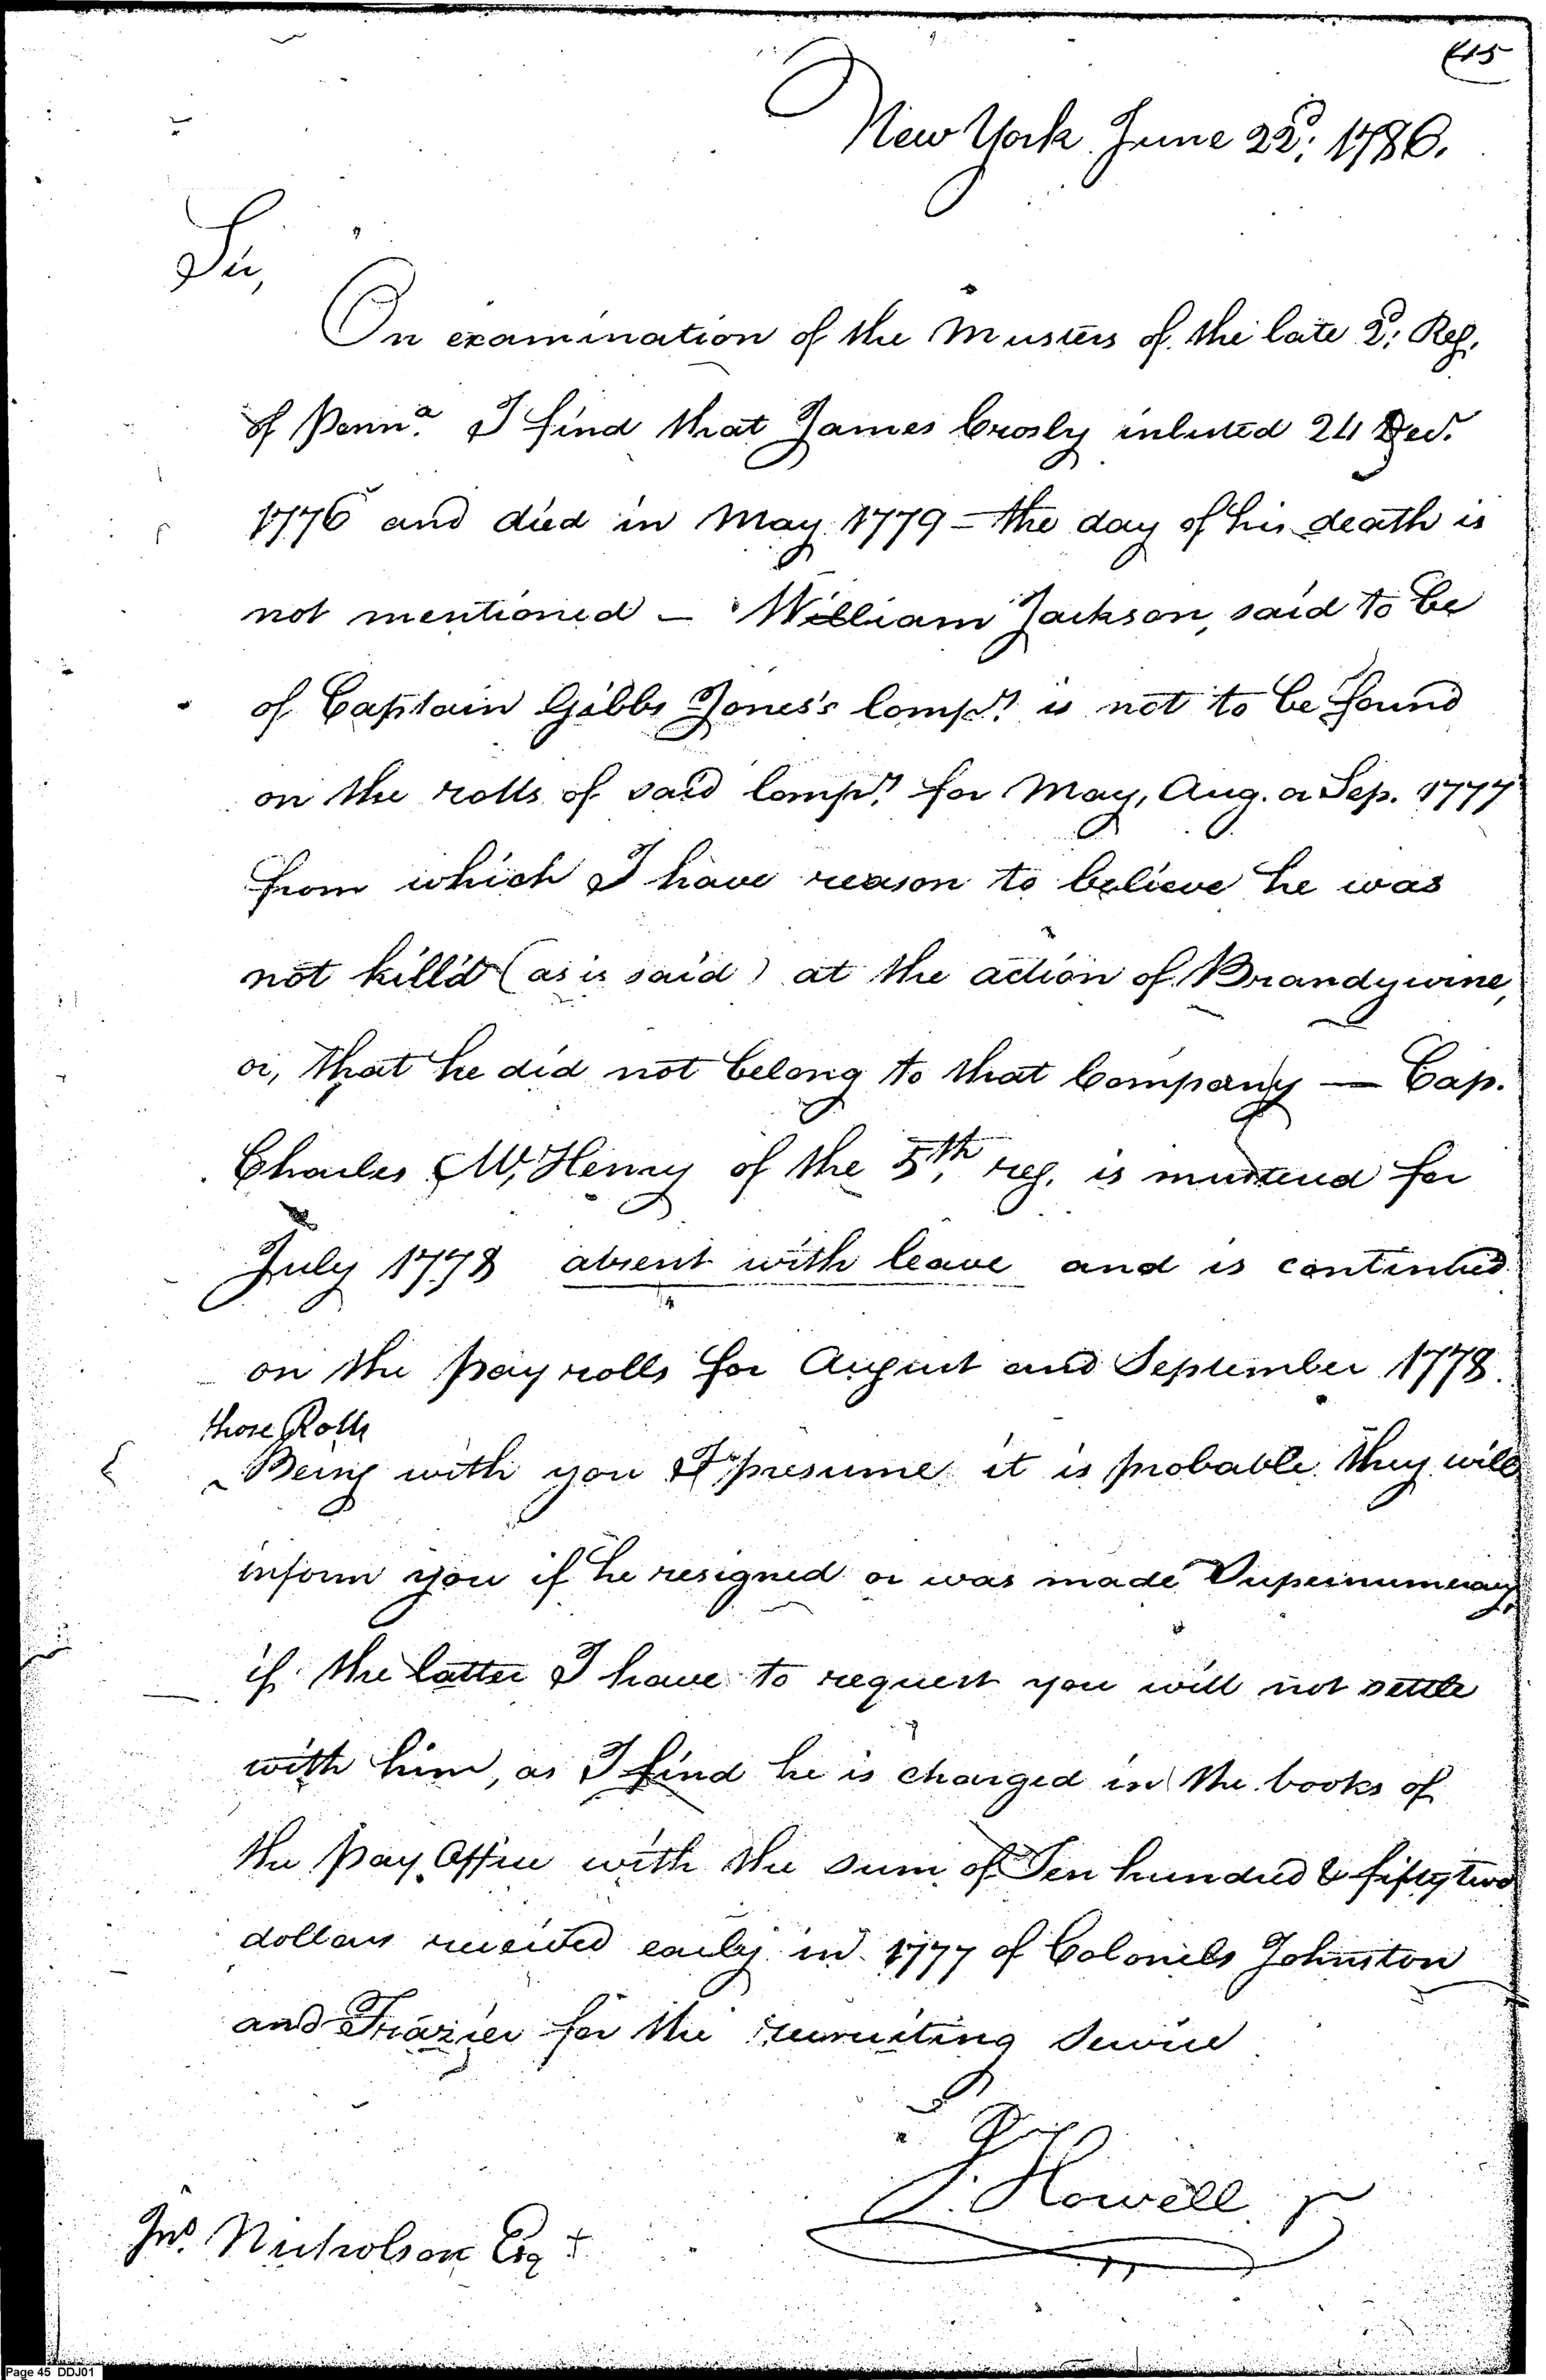 45
New York June 22d: 1786.
Sir,
On examination of the Musters of the late 2d: Reg.
of Penna. I find that James Crosly inlisted 24 Decr.
1776 and died in May 1779 - the day of his death is
not mentioned - William Jackson, said to be
of Captain Gibbs Jones's Compy. is not to be found
on the rolls of said Compy. for May, Aug. or Sep. 1777
from which I have reason to believe he was
not kill'd (as is said) at the action of Brandywine,
or, that he did not belong to that Company — Cap.
Charles Mc,Henry of the 5th. reg. is mustered for
July 1778 absent with leave and is continued
on the pay rolls for August and September 1778.
those Rolls
^ Being with you I presume it is probable they will
inform you if he resigned or was made Supernumerary,
if the latter I have to request you will not settle
with him, as I find he is charged in the books of
the Pay Office with the sum of Ten hundred & fifty two
dollars received early in 1777 of Colonels Johnston
and Frazier for the recruiting Service
J. Howell Jr
Jno. Nicholson Esqr
Page 45 DDJ01